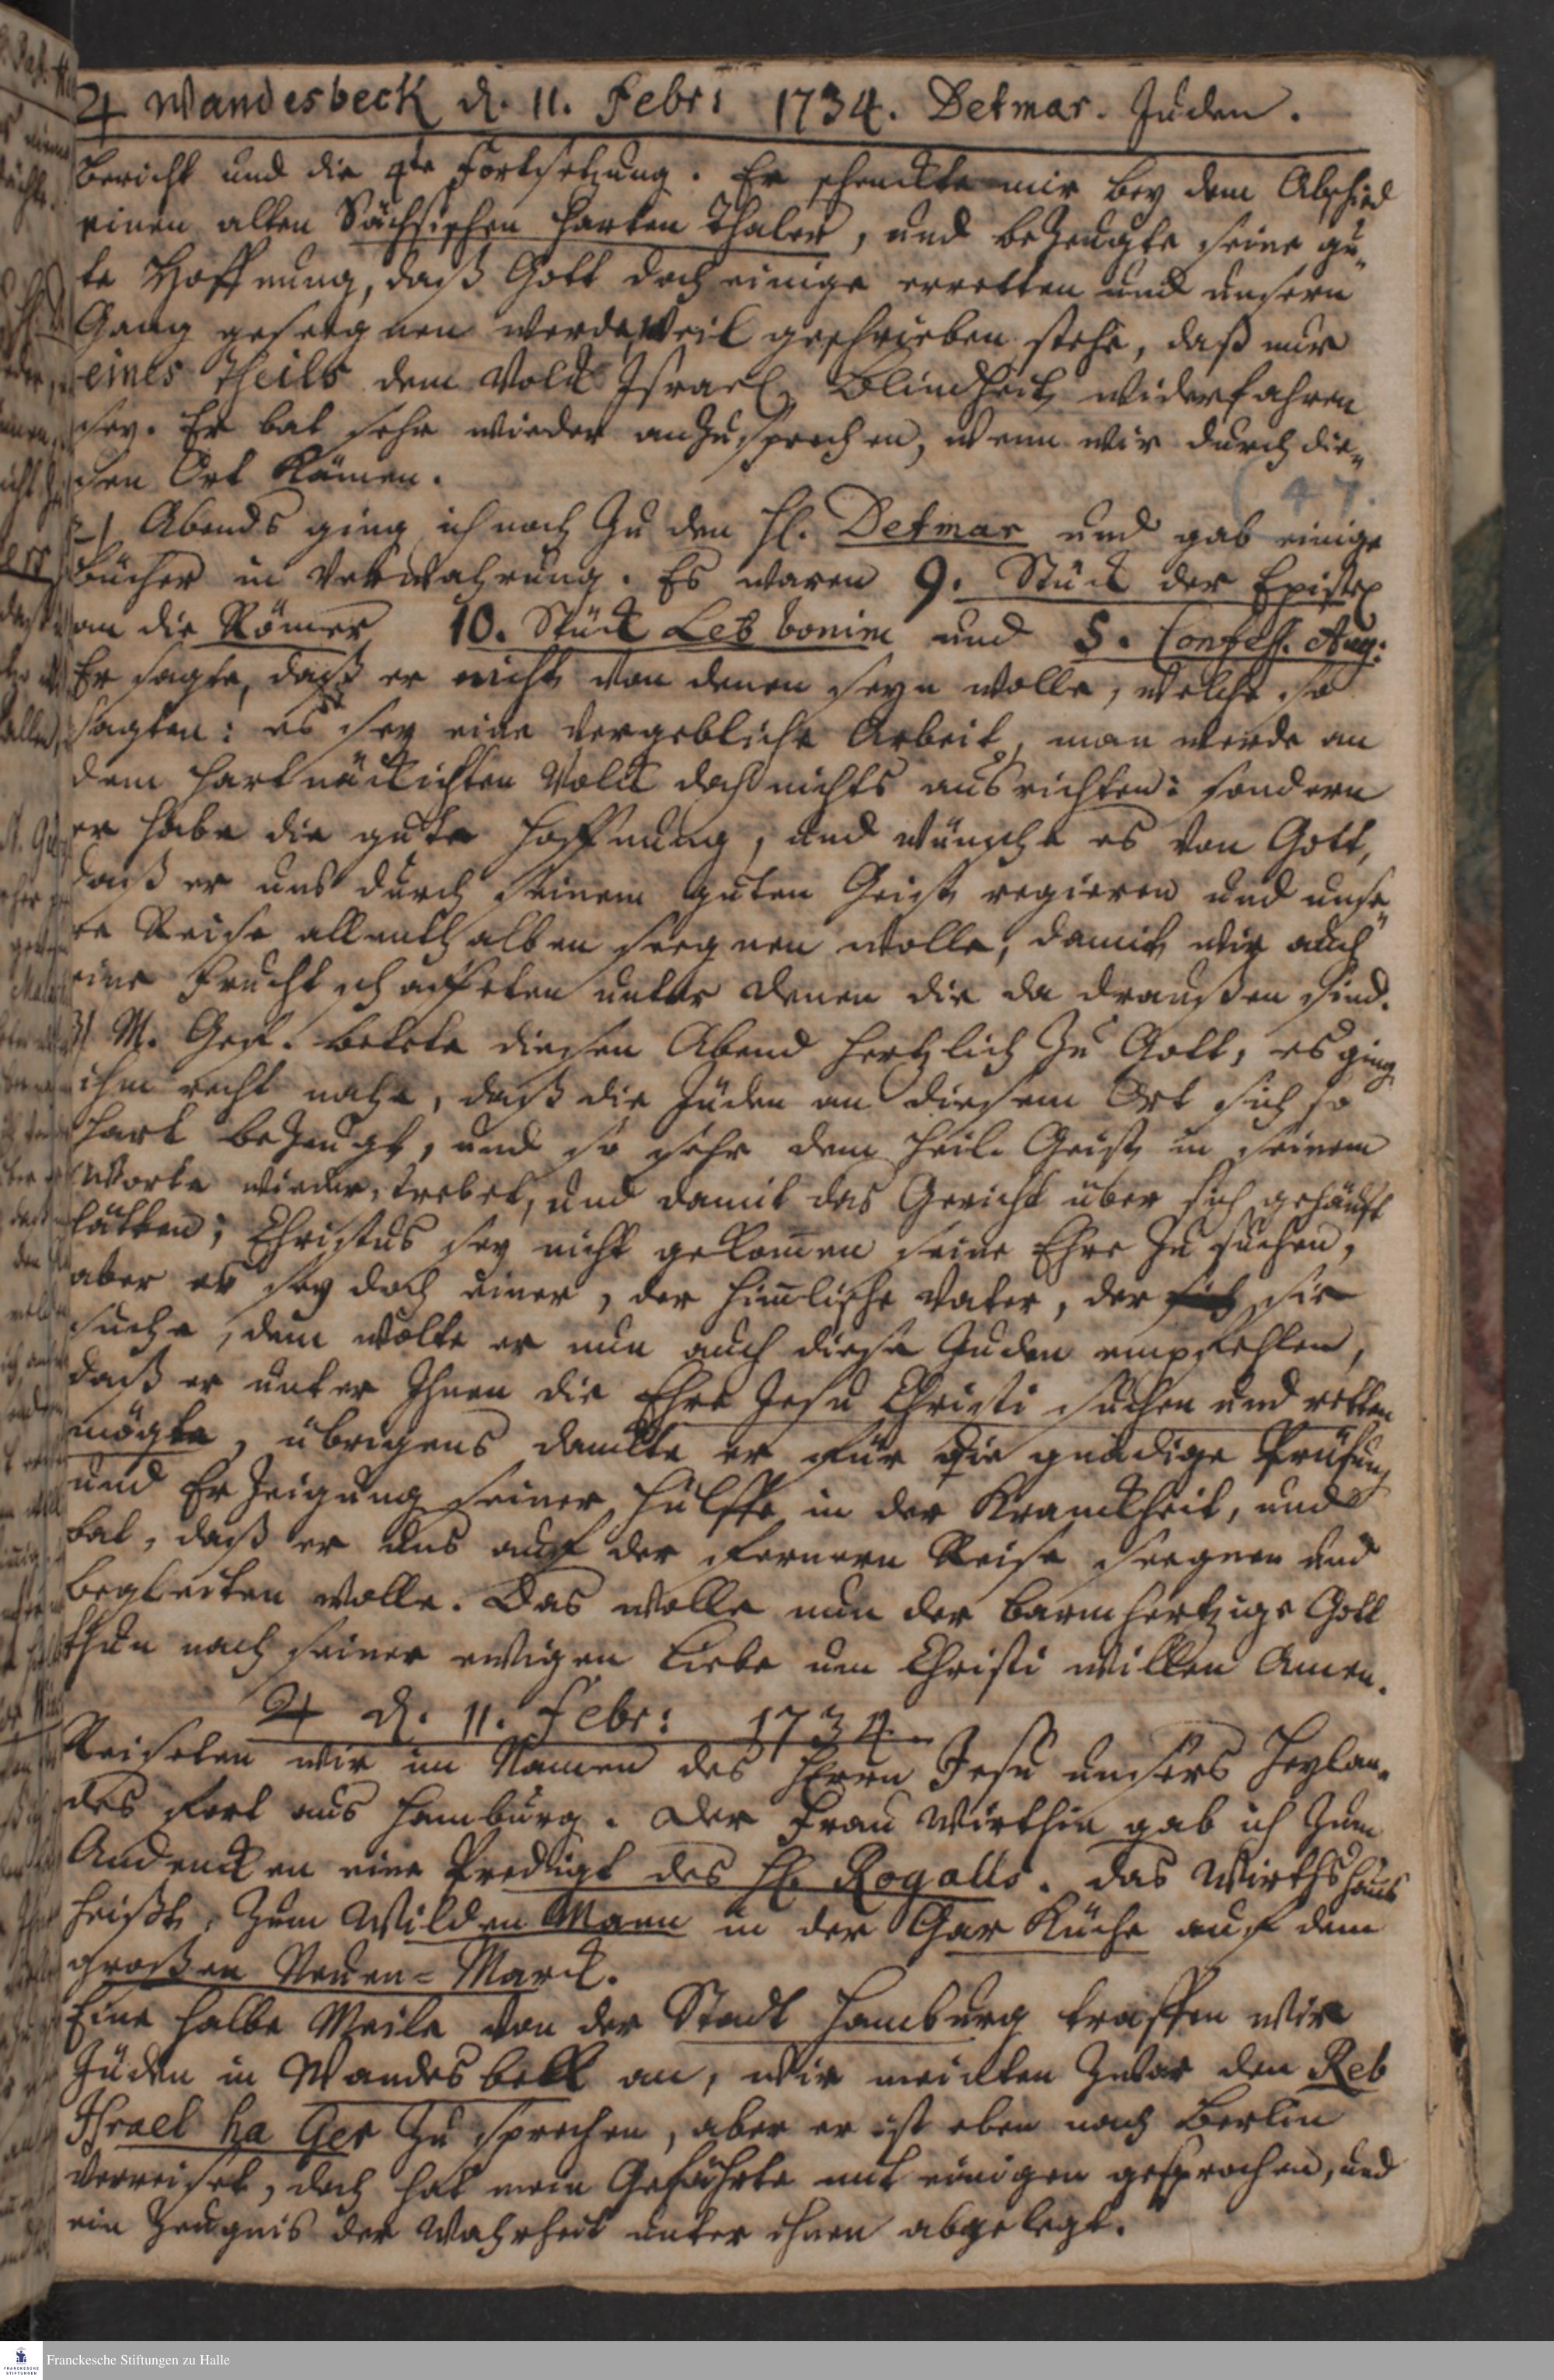 ♃ Wandesbeck d. 11. Febr: 1734. Detmar. Juden.
Bericht und die 4te Fortsetzung. Er schenckte mir bey dem Abschied
einen alten Sächsischen harten Thaler, und bezeugte seine gu„
te Hoffnung, daß Gott doch einige erretten und unsern
Gang geseegnen werde, weil geschrieben stehe, daß nur
eines theils dem Volck Israel Blindheit widerfahren
sey. Er bat sehr wieder anzusprechen, wenn wir durch die„
sen Ort kämen.
47.
2) Abends ging ich noch zu den H. Detmar und gab einige
Bücher in Verwahrung. Es waren 9. Stück der Epistel
an die Römer 10. Stück Leb bonim und 5. Confess. Aug:
Er sagte, daß er nicht von denen seyn wolle, welche so
sagten: es sey eine vergebliche Arbeit, man werde an
dem hartnäckichten Volck doch nichts ausrichten: sondern
er habe die gute Hoffnung, und wünsche es von Gott,
daß er uns durch seinem guten Geist regieren und unse„
re Reise allenthalben seegnen wolle, damit wir auch
eine Frucht schaffeten unter denen die da draußen sind.
3) M. Gef. betete diesen Abend hertzlich zu Gott, es ging
ihm recht nahe, daß die Juden an diesem Ort sich so
hart bezeugt, und so sehr dem Heil. Geist in seinem
Worte wiederstrebet, und damit das Gericht über sich gehäuft
hätten; Christus sey nicht gekommen seine Ehre zu suchen,
aber es sey doch einer, der himlische Vater, der sie
suche, dem wolte er nun auch diese Juden empfehlen,
daß er unter Ihnen die Ehre Jesu Christi suchen und retten
mögte, übrigens danckte er für die gnädige Prüfung
und Erzeigung seiner Hülffe in der Kranckheit, und
bat, daß er uns auf der fernern Reise seegnen und
begleiten wolle. Das wolle nun der barmhertzige Gott
thun nach seiner ewigen Liebe um Christi willen Amen.
♃ d. 11. Febr: 1734.
Reiseten wir im Namen des Herrn Jesu unsers Heylan„
des fort aus Hamburg. Der Frau Wirthin gab ich zum
Andencken eine Predigt des H. Rogalls. Das Wirthshaus
heißt, zum Wilden Mann in der Gar Küche auf dem
großen Neuen=Marck.
Eine halbe Meile von der Stadt Hamburg traffen wir
Juden in Wandesbeck an, wir meinten zwar den Reb
Israel ha Ger zu sprechen, aber er ist eben nach Berlin
verreiset, doch hat mein Gefährte mit einigen gesprochen, und
ein Zeugnis der Wahrheit unter ihnen abgelegt.
Franckesche Stiftungen zu Halle